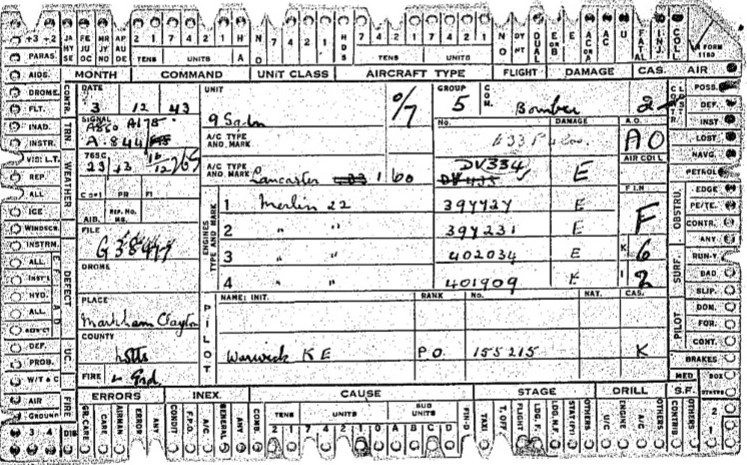 +3 +2 JA MY SE FE JU OC MR JY NO AP AU DE 2 1 7 4 2 1 H A NO 7 4 2 1 HDS 7 4 2 1 7 4 2 1 NO DY NT DUAL E OR B E AC OR A AC U FATAL INJ. COLL
TENS UNITS TENS UNITS
FORM 1180
PARAS. MONTH COMMAND UNIT CLASS AIRCRAFT TYPE FLIGHT DAMAGE CAS. AIR
AIDS. DATE UNIT GROUP COM. POSS.
DROME. 3 12 43 5 Bomber 2 DEF.
FLT. CONTR. SIGNAL 9 Sqdn 0/7 No. DAMAGE A.O. INST
INAD. TRN. A.844 A/C TYPE AND MARK AO LOST
INSTR. 765C AIR COLL NAVG.
VIS: L.T. A/C TYPE AND MARK Lancaster DV334 E PETROL
REP. WEATHER F.I.H EDGE
ALL 1 Merlin 22 397727 E F PE/TE.
ICE REP. No. 2 " " 397231 E CONTR. OBSTRU.
WINDSCR. AID. ENGINES TYPE AND MARK ANY
INSTRM. FILE 3 " " 402034 E K 6 RUN-Y. SURF.
ALL G38477 4 " " 401909 I 2 BAD.
INST'S DROME NAME: INIT. RANK No. NAT. CAS. SLIP.
HYD. DEFECT PLACE DON.
ALL Markham Clayton PILOT FOR.
DEF. COUNTY CONT.
PROB. UC. Notts Warwick K E P O. 155215 K BRAKES
W/T & C FIRE MED BOX
AIR ERRORS INEX. CAUSE STAGE DRILL S.F. OTHERS
GROUND FIRE GR.CARE CARE AIRMAN ERROR ANY CONDIT F.P.O. A/C GENERAL ANY COMB TENS UNITS SUB UNITS FIN-D TAXI T. OFF FLIGHT LDG. F. LDG. N.F. STAT(P) OTHERS U/C ENGINE A/C OTHERS CONTRIB OTHERS 2 1
3 4 DIS 2 1 7 4 2 1 0 A B C D